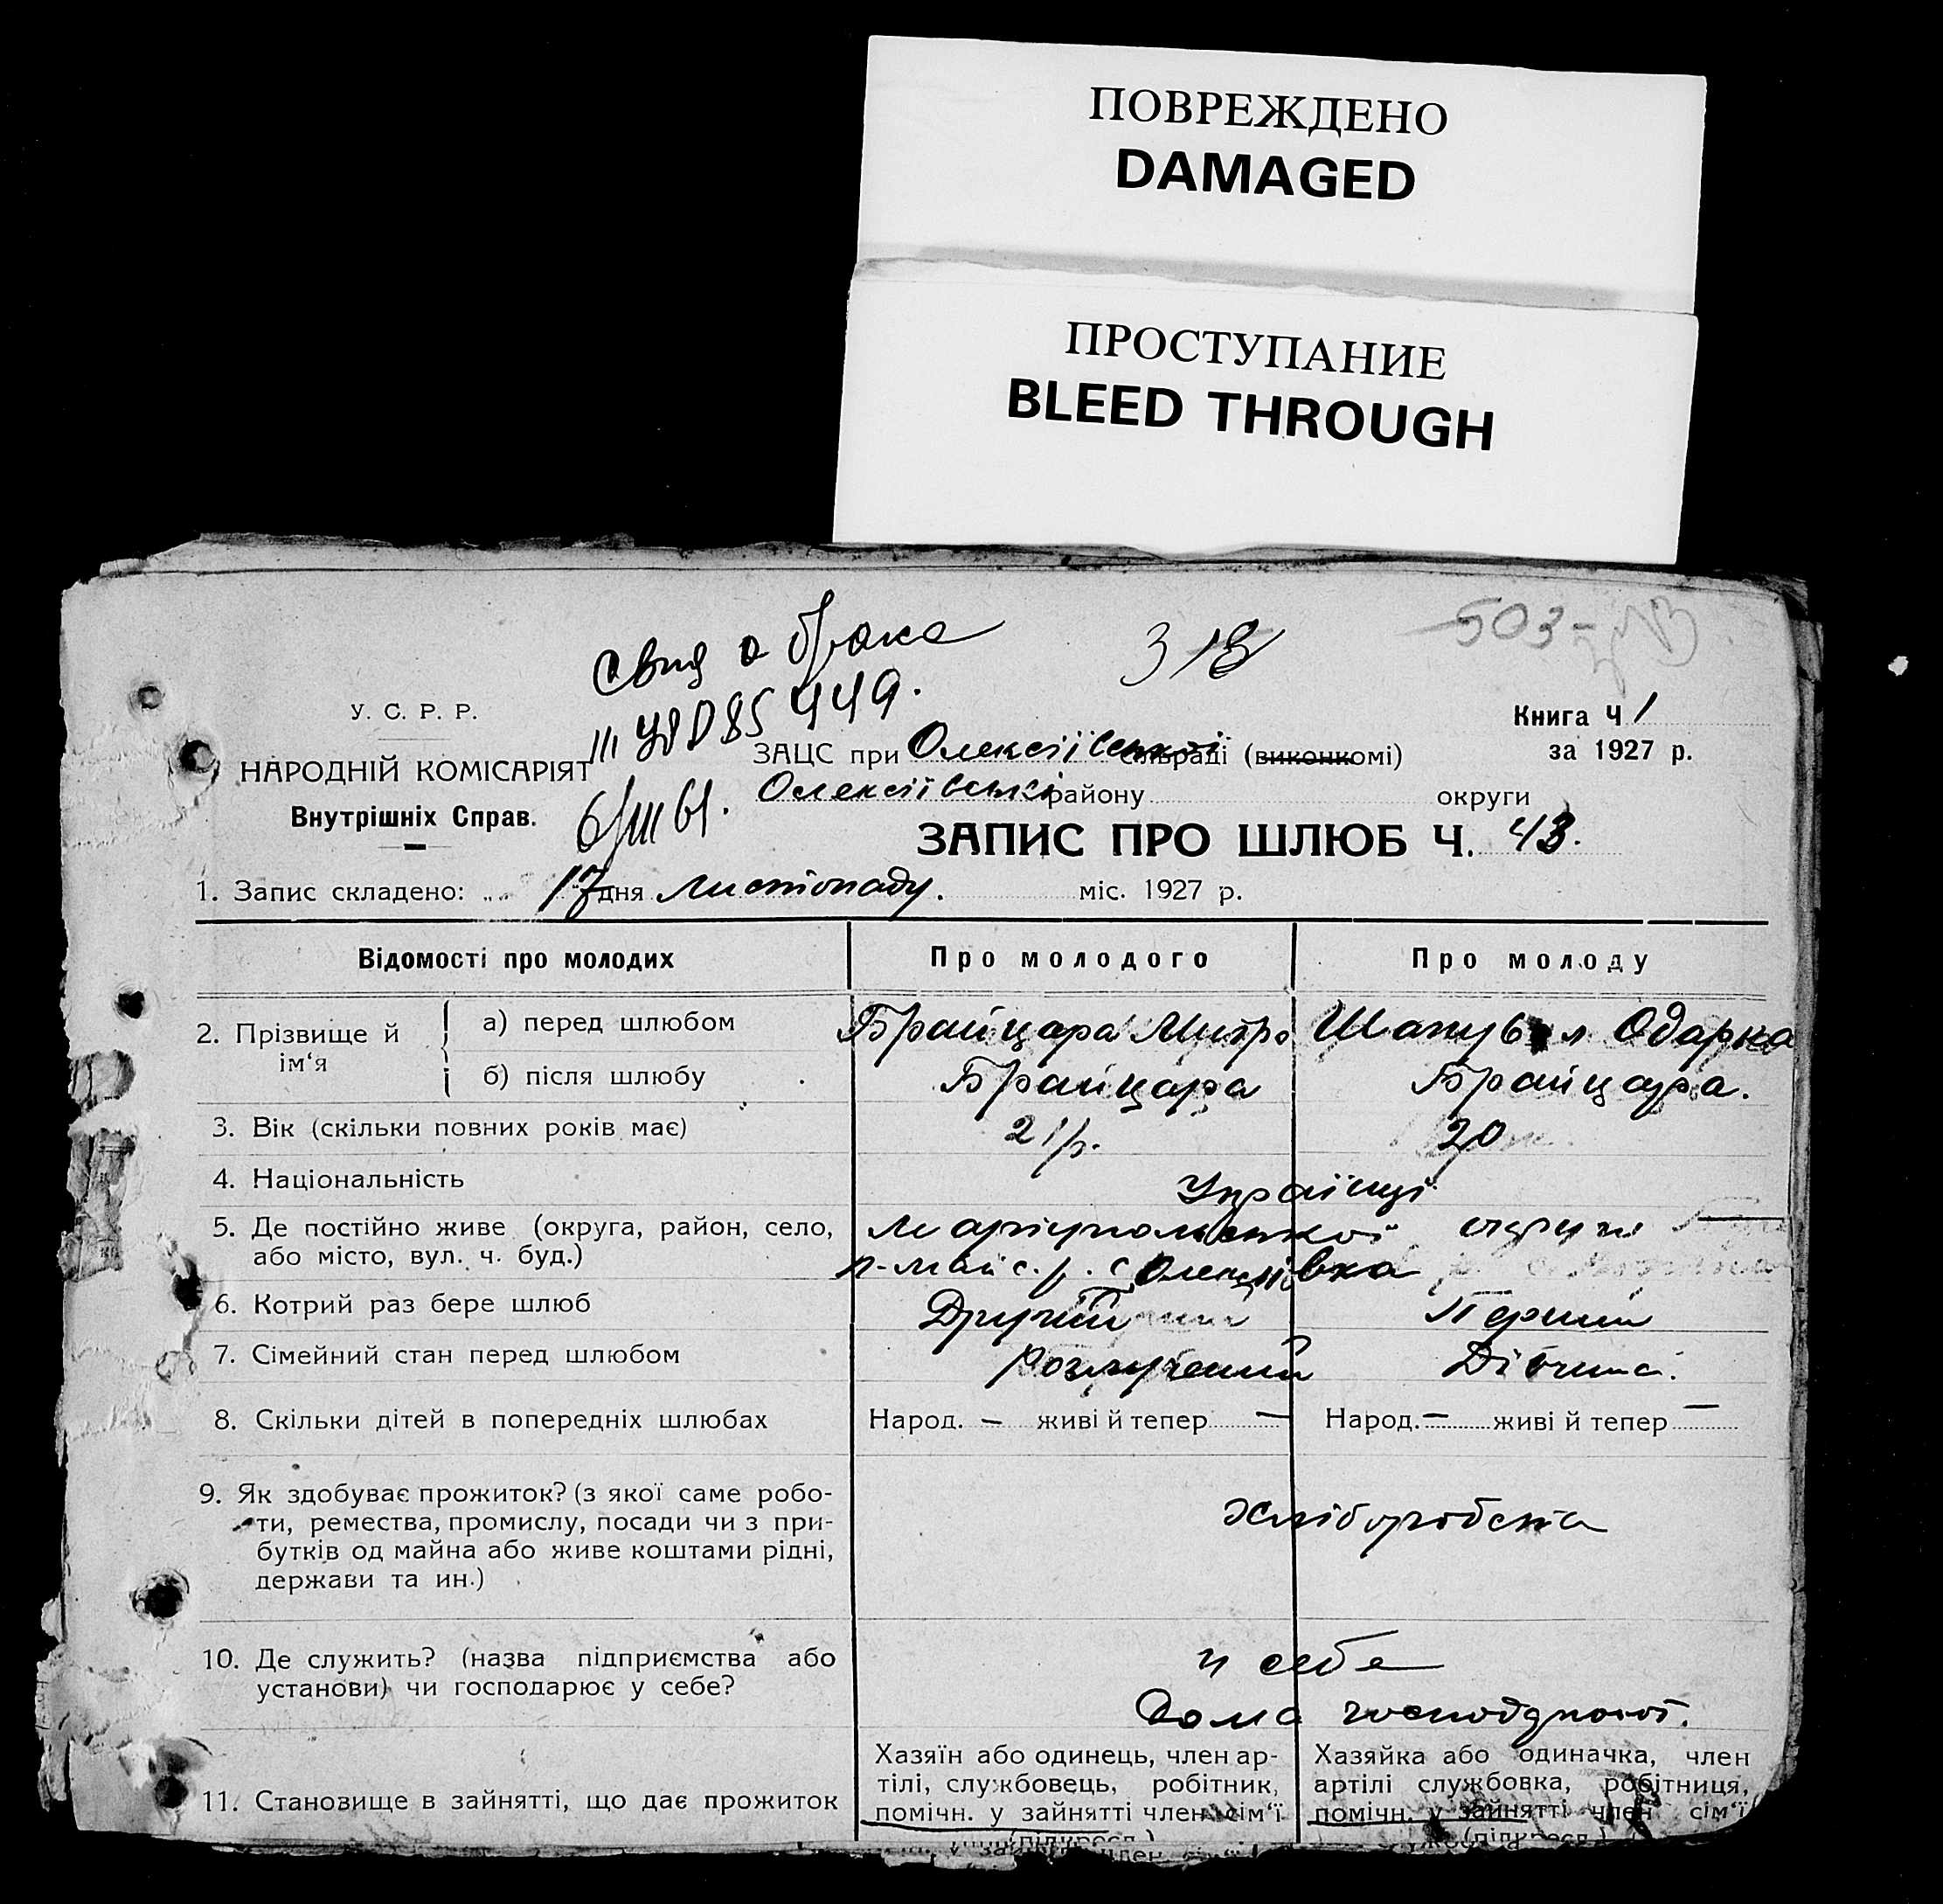 ПОВРЕЖДЕНО
DAMAGED
ПРОСТУПАНИЕ
BLEED THROUGH
503-
318
свид о браке
449.
6/III 61.
У. С. Р. Р.
НАРОДНІЙ КОМІСАРІЯТ
Внутрішніх Справ.
Книга Ч 1
за 1927 р.
ЗАЦС при Олексіївській сільраді (виконкомі)
Олексіївські району округи
ЗАПИС ПРО ШЛЮБ Ч. 43.
1. Запис складено: 17 дня листопаду. міс. 1927 р.
Відомості про молодих Про молодого Про молоду
2. Прізвище й ім‘я
а) перед шлюбом Брайцара Митро Одарка
б) після шлюбу Брайцара Брайцара.
3. Вік (скільки повних років має) 21 р. 20
4. Національність Українці
5. Де постійно живе (округа, район, село, Маріупольської округи
або місто, вул. ч. буд.) с.
6. Котрий раз бере шлюб Другий Перший
7. Сімейний стан перед шлюбом розлучений
8. Скільки дітей в попередніх шлюбах Народ. — живі й тепер — Народ. — живі й тепер —
9. Як здобуває прожиток? (з якої саме робо-
ти, ремества, промислу, посади чи з при-
бутків од майна або живе коштами рідні,
держави та ин.)
Хліборобства
10. Де служить? (назва підприємства або
установи) чи господарює у себе?
у себе
Дома
11. Становище в зайнятті, що дає прожиток
Хазяїн або одинець, член ар-
тілі, службовець, робітник,
помічн. у зайнятті член сім‘ї
(підкресл.)
Хазяйка або одиначка, член
артілі службовка, робітниця,
помічн. у зайнятті член сім‘ї
(підкресл.)